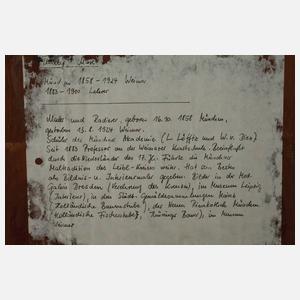 München 1858 – 1924 Weimar
1883 – 1900 Lehrer
Maler und Radierer, geboren 16.10. 1858 München,
gestorben 13.8. 1924 Weimar.
Schüler der Münchner Akademie (L. Löfftz und W. v. Diez)
Seit 1883 Professor an der Weimarer Kunstschule. Beeinflußt
durch die Niederländer des 17. Jh. Führte die Münchner
Maltradition des Leibl-Kreises weiter. Hat sein Bestes
als Bildnis- u. Interieurmaler gegeben. Bilder in der
Galerie Dresden (Verehrung des Kreuzes), im Museum Leipzig
(Interieur), in den Städt. Gemäldesammlungen Mainz
Holländische Bauernstube, der Neuen Pinakothek München
(Holländische Fischerstube), Thüringer Bauer), im Museum
Weimar